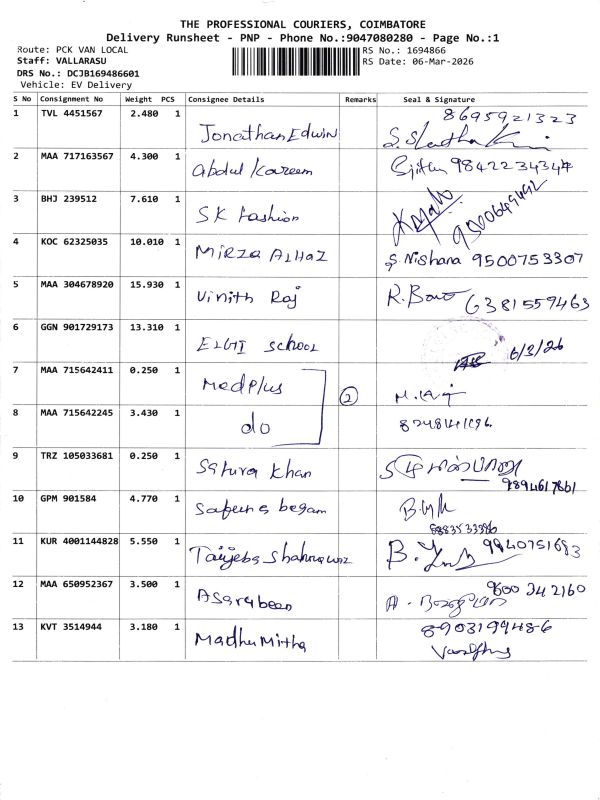 THE PROFESSIONAL COURIERS, COIMBATORE
Delivery Runsheet - PNP - Phone No.:9047080280 - Page No.:1
Route: PCK VAN LOCAL
RS No.: 1694866
Staff: VALLARASU
RS Date: 06-Mar-2026
DRS No.: DCJB169486601
Vehicle: EV Delivery
S No Consignment No Weight PCS Consignee Details Remarks Seal & Signature
1 TVL 4451567 2.480 1 Jonathan Edwin 8695921323
2 MAA 717163567 4.300 1 Abdul Kareem 9842234344
3 BHJ 239512 7.610 1 SK Fashion 9500649492
4 KOC 62325035 10.010 1 Mirza ALHAZ S. Nishana 9500753307
5 MAA 304678920 15.930 1 Vinith Raj R. 6381559463
6 GGN 901729173 13.310 1 ELGI School 6/3/26
7 MAA 715642411 0.250 1 Medplus 2 M.
8 MAA 715642245 3.430 1 do
9 TRZ 105033681 0.250 1 Khan 9894617861
10 GPM 901584 4.770 1 begam 8883533386
11 KUR 4001144828 5.550 1 B. 9940751693
12 MAA 650952367 3.500 1 A.
13 KVT 3514944 3.180 1 Madhu Mitha 8903199486